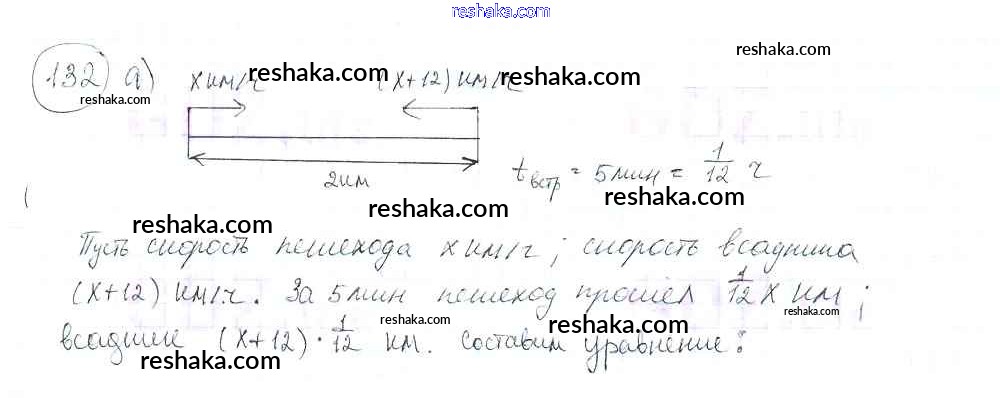 reshaka.com
132 а) х км/ч (х+12) км/ч
2 км
tвстр = 5 мин = 1/12 ч
Пусть скорость пешехода х км/ч; скорость всадника
(х+12) км/ч. За 5 мин пешеход прошёл 1/12 х км;
всадник (х+12)·1/12 км. Составим уравнение:
reshaka.com
reshaka.com
reshaka.com
reshaka.com
reshaka.com
reshaka.com
reshaka.com
reshaka.com
reshaka.com
reshaka.com
reshaka.com
reshaka.com